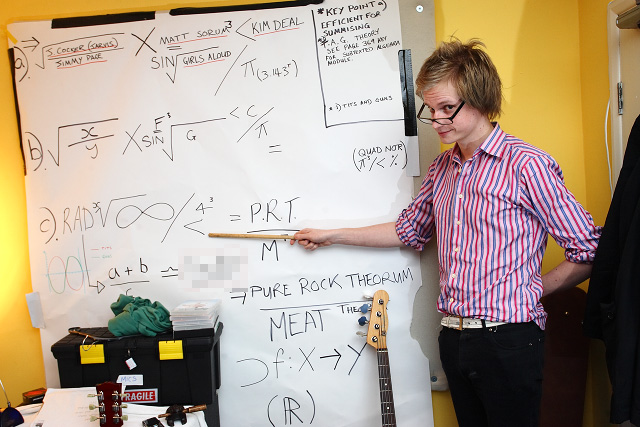 a). → √ J. COCKER (JARVIS) / JIMMY PAGE X MATT SORUM³ / SIN √ GIRLS ALOUD < KIM DEAL / π (3.143")
* KEY POINT *
EFFICIENT FOR
SUMMISING
T.A.G. THEORY
SEE PAGE 369 KEY
FOR SUBTEXTED ALGEBRA
MODULE.
* :) TITS AND GUNS
b). √ x / y X SIN E³ √ G < C / π =
(QUAD NOTE)
(π³/< %)
c). RAD x √ ∞ / 4³ < = P.R.T. / M
→ a + b ≈
→ PURE ROCK THEORUM
MEAT
⊃ f: X → Y
(ℝ)
FRAGILE